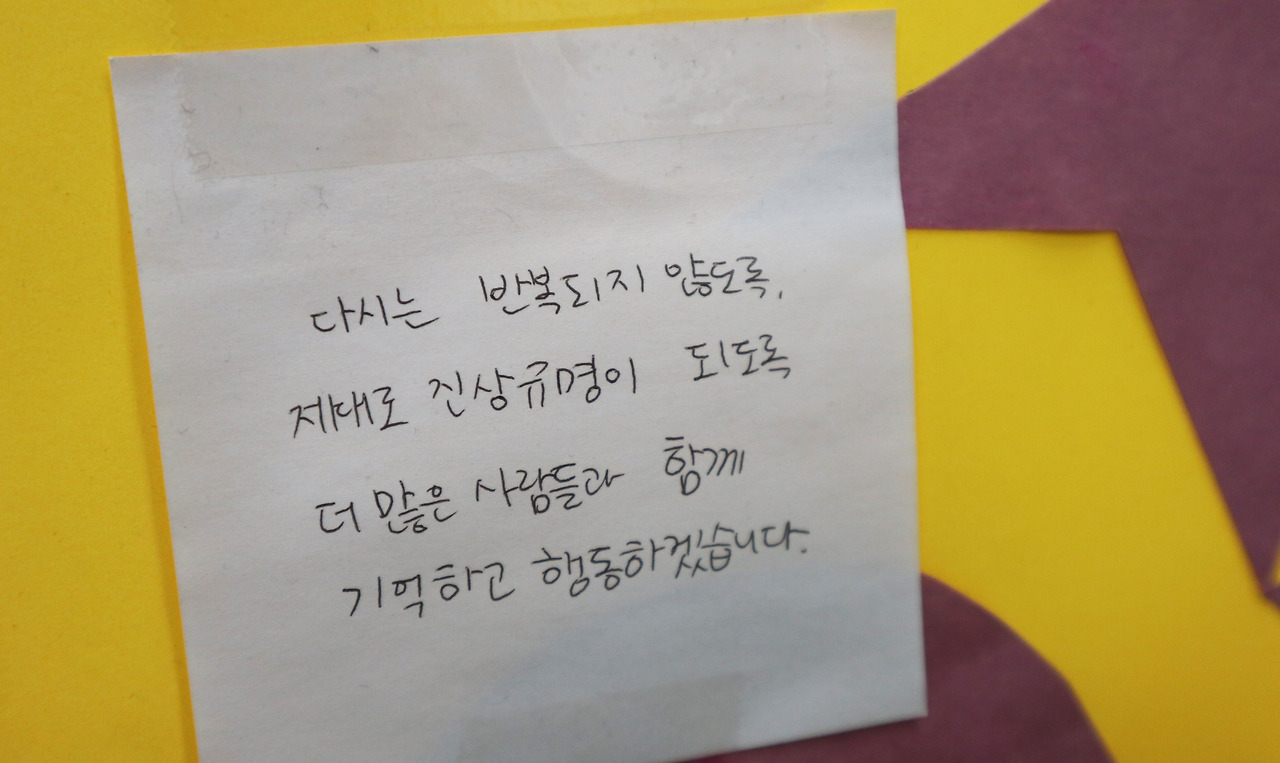 다시는 반복되지 않도록,
제대로 진상규명이 되도록
더 많은 사람들과 함께
기억하고 행동하겠습니다.